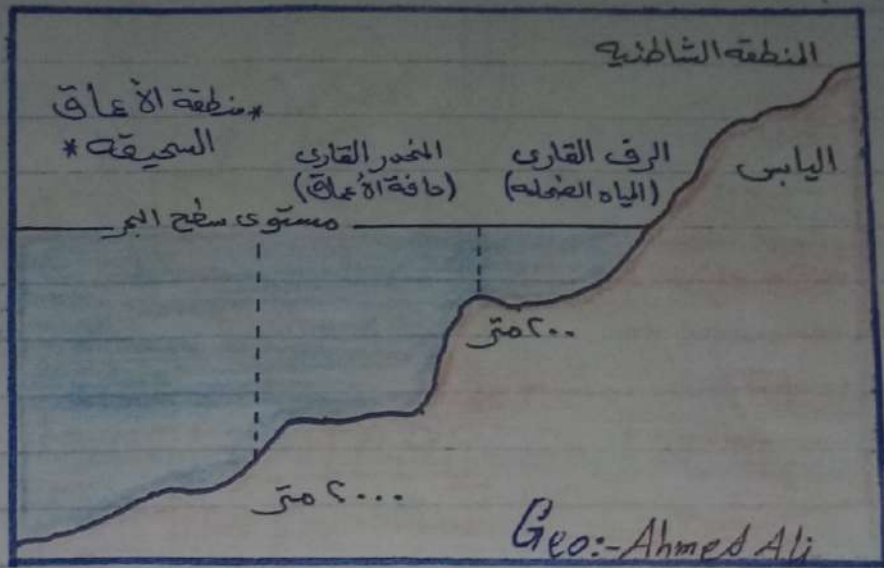 المنطقه الشاطئيه
اليابس
الرف القارى
(المياه الضحله)
المنحدر القارى
(حافة الأعماق)
*منطقة الأعماق
السحيقه*
مستوى سطح البحر
٢٠٠ متر
٢٠٠٠ متر
Geo:-Ahmed Ali